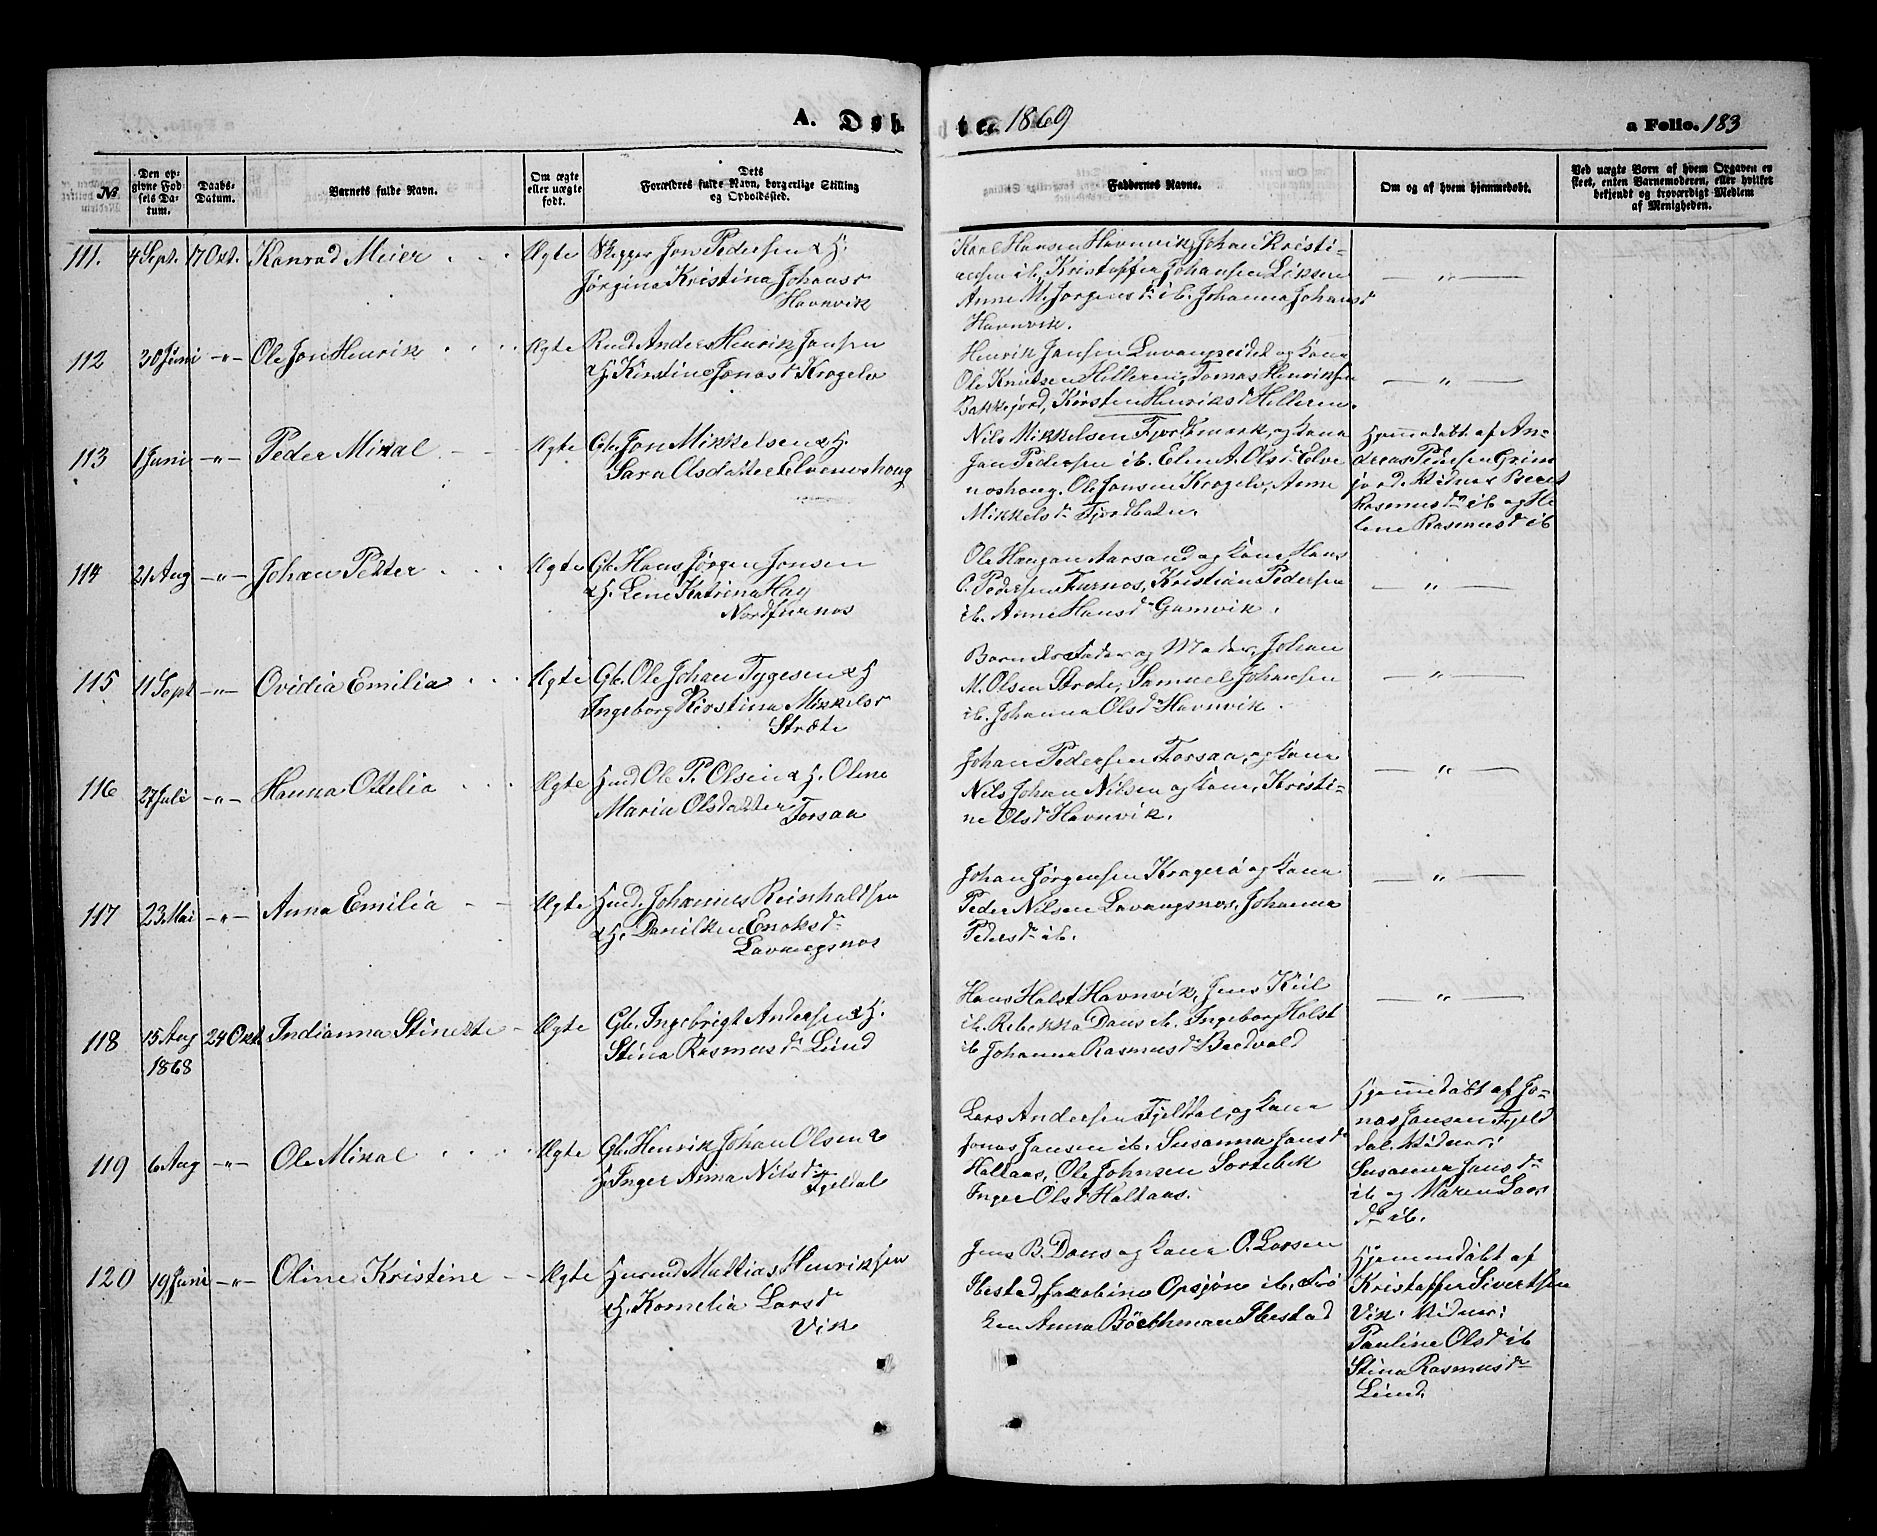 A. Døb te. 1869
a Folio. 183
№
Den op-
givne Fød
sels Da-
tum.
Daabs-
Datum.
Barnets fulde Navn.
Om ægte
eller uægte
født.
Dets
Forældres fulde Navn, borgerlige Stilling
og Opholdssted.
Faddernes Navne.
Om og af hvem hjemmedøbt.
Ved uægte Børn af hvem Opgaven er
skeet, enten Barnemoderen, eller hvilket
bekjendt og troværdigt Medlem
af Menigheden.
111. 4 Sept. 17 Okt. Konrad Meier Ægte Skipper Jon Pedersen & H.
Jørgina Kristina Johansd
Havnvik
Karl Hansen Havnvik, Johan Kristi-
ansen ib. Kristoffer Johansen
Anne M. Jørgensdr ib. Johanna Johansd
Havnvik.
— " —
112 30 Juni -"- Ole Jon Henrik Ægte Anders Henrik Jansen
& H. Kirstine Jonasd Krogelv
Henrik Jansen Lavangseidet og Kona
Ole Knutsen Helleren, Tomas Henriksen
Bakkejord, Kirsten Henriksd Helleren.
— " —
113 1 Juni -"- Peder Mikal Ægte Gb. Jon Mikkelsen & H.
Sara Olsdatter Elveneshoug
Nils Mikkelsen Fjordbmark, og Kona
Jon Pedersen ib. Elen A. Olsd Elve
neshoug. Ole Jonsen Krogelv, Anne
Mikkelsdr Fjordbotn.
Hjemmedøbt af An-
dreas Pedersen Grin
jord. Vidner Beret
Rasmusdr ib og He
lene Rasmusd ib
114 21 Aug -"- Johan Petter Ægte Gb. Hans Jørgen Jonsen
& H. Lene Katrina Hag
Nordfurnes
Ole Haugan Aarsand og Kona Hans
C. Pedersen Furnes, Kristian Pedersen
ib. Anne Hansd Gamvik.
— " —
115 11 Sept -"- Ovidia Emilia Ægte Gb. Ole Johan Tygesen & H
Ingeborg Kirstina Mikkelsd
Stræte
Barnets Fader og Moder, Johan
M. Olsen Stræte, Samuel Johansen
ib. Johanna Olsd Havnvik.
— " —
116 27 Juli -"- Hanna Ottelia Ægte Hmd Ole P. Olsen & H. Oline
Maria Olsdatter
Forsaa
Johan Pedersen Forsaa, og Kona
Nils Johan Nilsen og Kona, Kristi-
ne Olsd Havnvik.
— " —
117 23 Mai -"- Anna Emilia Ægte Hmd. Johannes Reinholdtsen
& H. Danilken Enoksdr
Lavangsnes
Johan Jørgensen Kragerø og Kona
Peder Nilsen Lavangsnes, Johanna
Pedersdr ib.
— " —
118 15 Aug
1868 24 Okt Indianna Stinette Ægte Gb. Ingebrigt Andersen & H.
Stina Rasmusdr Lund
Hans Holst Havnvik, Jens Kiil
ib. Rebekka Dons ib. Ingeborg Holst
ib Johanna Rasmusdr Bredvold
— " —
119 6 Aug -"- Ole Mikal Ægte Gb. Henrik Johan Olsen &
H. Inger Anna Nilsdr
Fjeldal
Lars Andersen Fjeldal, og Kona
Jonas Jansen ib. Susanna Jansdr
Hallaas, Ole Johnsen Sortebek
Inger Olsd Haltaas.
Hjemmedøbt af Jo-
nas Jansen Fjeld
dal. Vidner:
Susanna Jansdr
ib og Maren Lars
dr ib.
120 19 Juni -"- Oline Kristine Ægte Husmd Mattias Henriksen
& H. Kornelia Larsdr
Vik
Jens B. Dons og Kona O. Larsen
Ibestad, Jakobine Opsjøn ib. Frø
ken Anna Böethman Ibestad
Hjemmedøbt af
Kristoffer Sivertsen
Vik. Vidner:
Pauline Olsdr ib
Stina Rasmusdr
Lund.